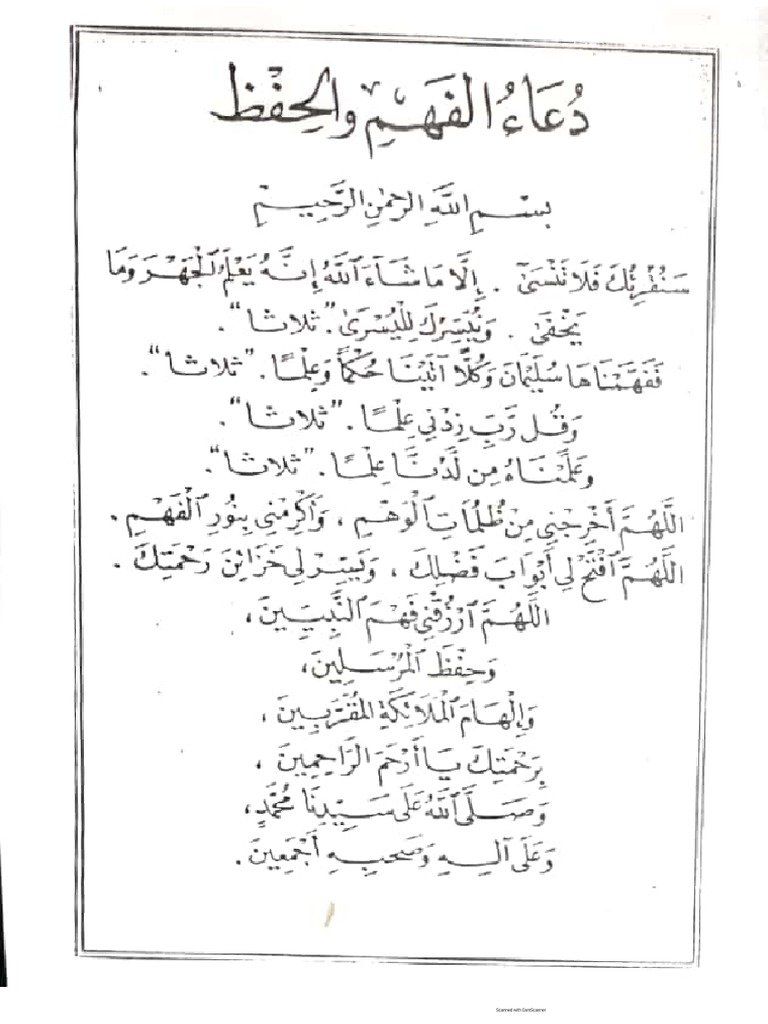 دُعَاءُ الْفَهْمِ وَالْحِفْظِ
بِسْمِ اللَّهِ الرَّحْمٰنِ الرَّحِيمِ
سَنُقْرِئُكَ فَلَا تَنْسَىٰ . إِلَّا مَا شَاءَ اللَّهُ إِنَّهُ يَعْلَمُ الْجَهْرَ وَمَا
يَخْفَىٰ . وَنُيَسِّرُكَ لِلْيُسْرَىٰ . "ثلاثا" .
فَفَهَّمْنَاهَا سُلَيْمَانَ وَكُلًّا آتَيْنَا حُكْمًا وَعِلْمًا . "ثلاثا" .
وَقُل رَّبِّ زِدْنِي عِلْمًا . "ثلاثا" .
وَعَلَّمْنَاهُ مِن لَّدُنَّا عِلْمًا . "ثلاثا" .
اللَّهُمَّ أَخْرِجْنِي مِنْ ظُلُمَاتِ الْوَهْمِ ، وَأَكْرِمْنِي بِنُورِ الْفَهْمِ .
اللَّهُمَّ افْتَحْ لِي أَبْوَابَ فَضْلِكَ ، وَيَسِّرْ لِي خَزَائِنَ رَحْمَتِكَ .
اللَّهُمَّ ارْزُقْنِي فَهْمَ النَّبِيِّينَ ،
وَحِفْظَ الْمُرْسَلِينَ ،
وَإِلْهَامَ الْمَلَائِكَةِ الْمُقَرَّبِينَ ،
بِرَحْمَتِكَ يَا أَرْحَمَ الرَّاحِمِينَ ،
وَصَلَّى اللَّهُ عَلَى سَيِّدِنَا مُحَمَّدٍ ،
وَعَلَى آلِهِ وَصَحْبِهِ أَجْمَعِينَ .
Scanned with CamScanner